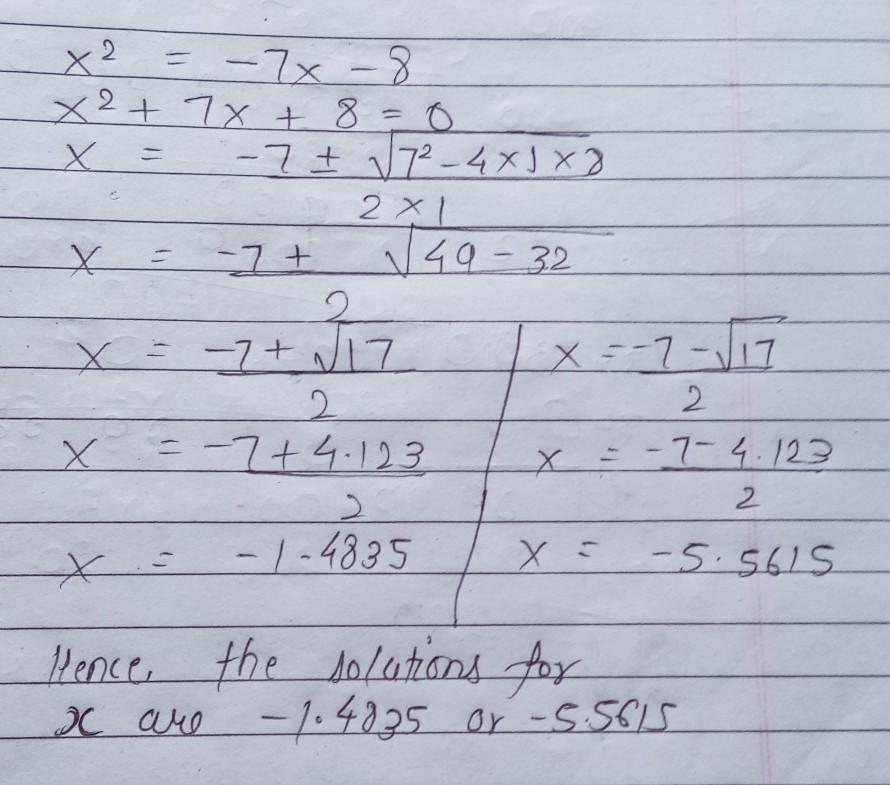 x² = -7x - 8
x² + 7x + 8 = 0
x = -7 ± √7² - 4×1×8
2 × 1
x = -7 + √49 - 32
2
x = -7 + √17
2
x = -7 + 4.123
2
x = -1.4835
x = -7 - √17
2
x = -7 - 4.123
2
x = -5.5615
Hence, the solutions for
x are -1.4835 or -5.5615